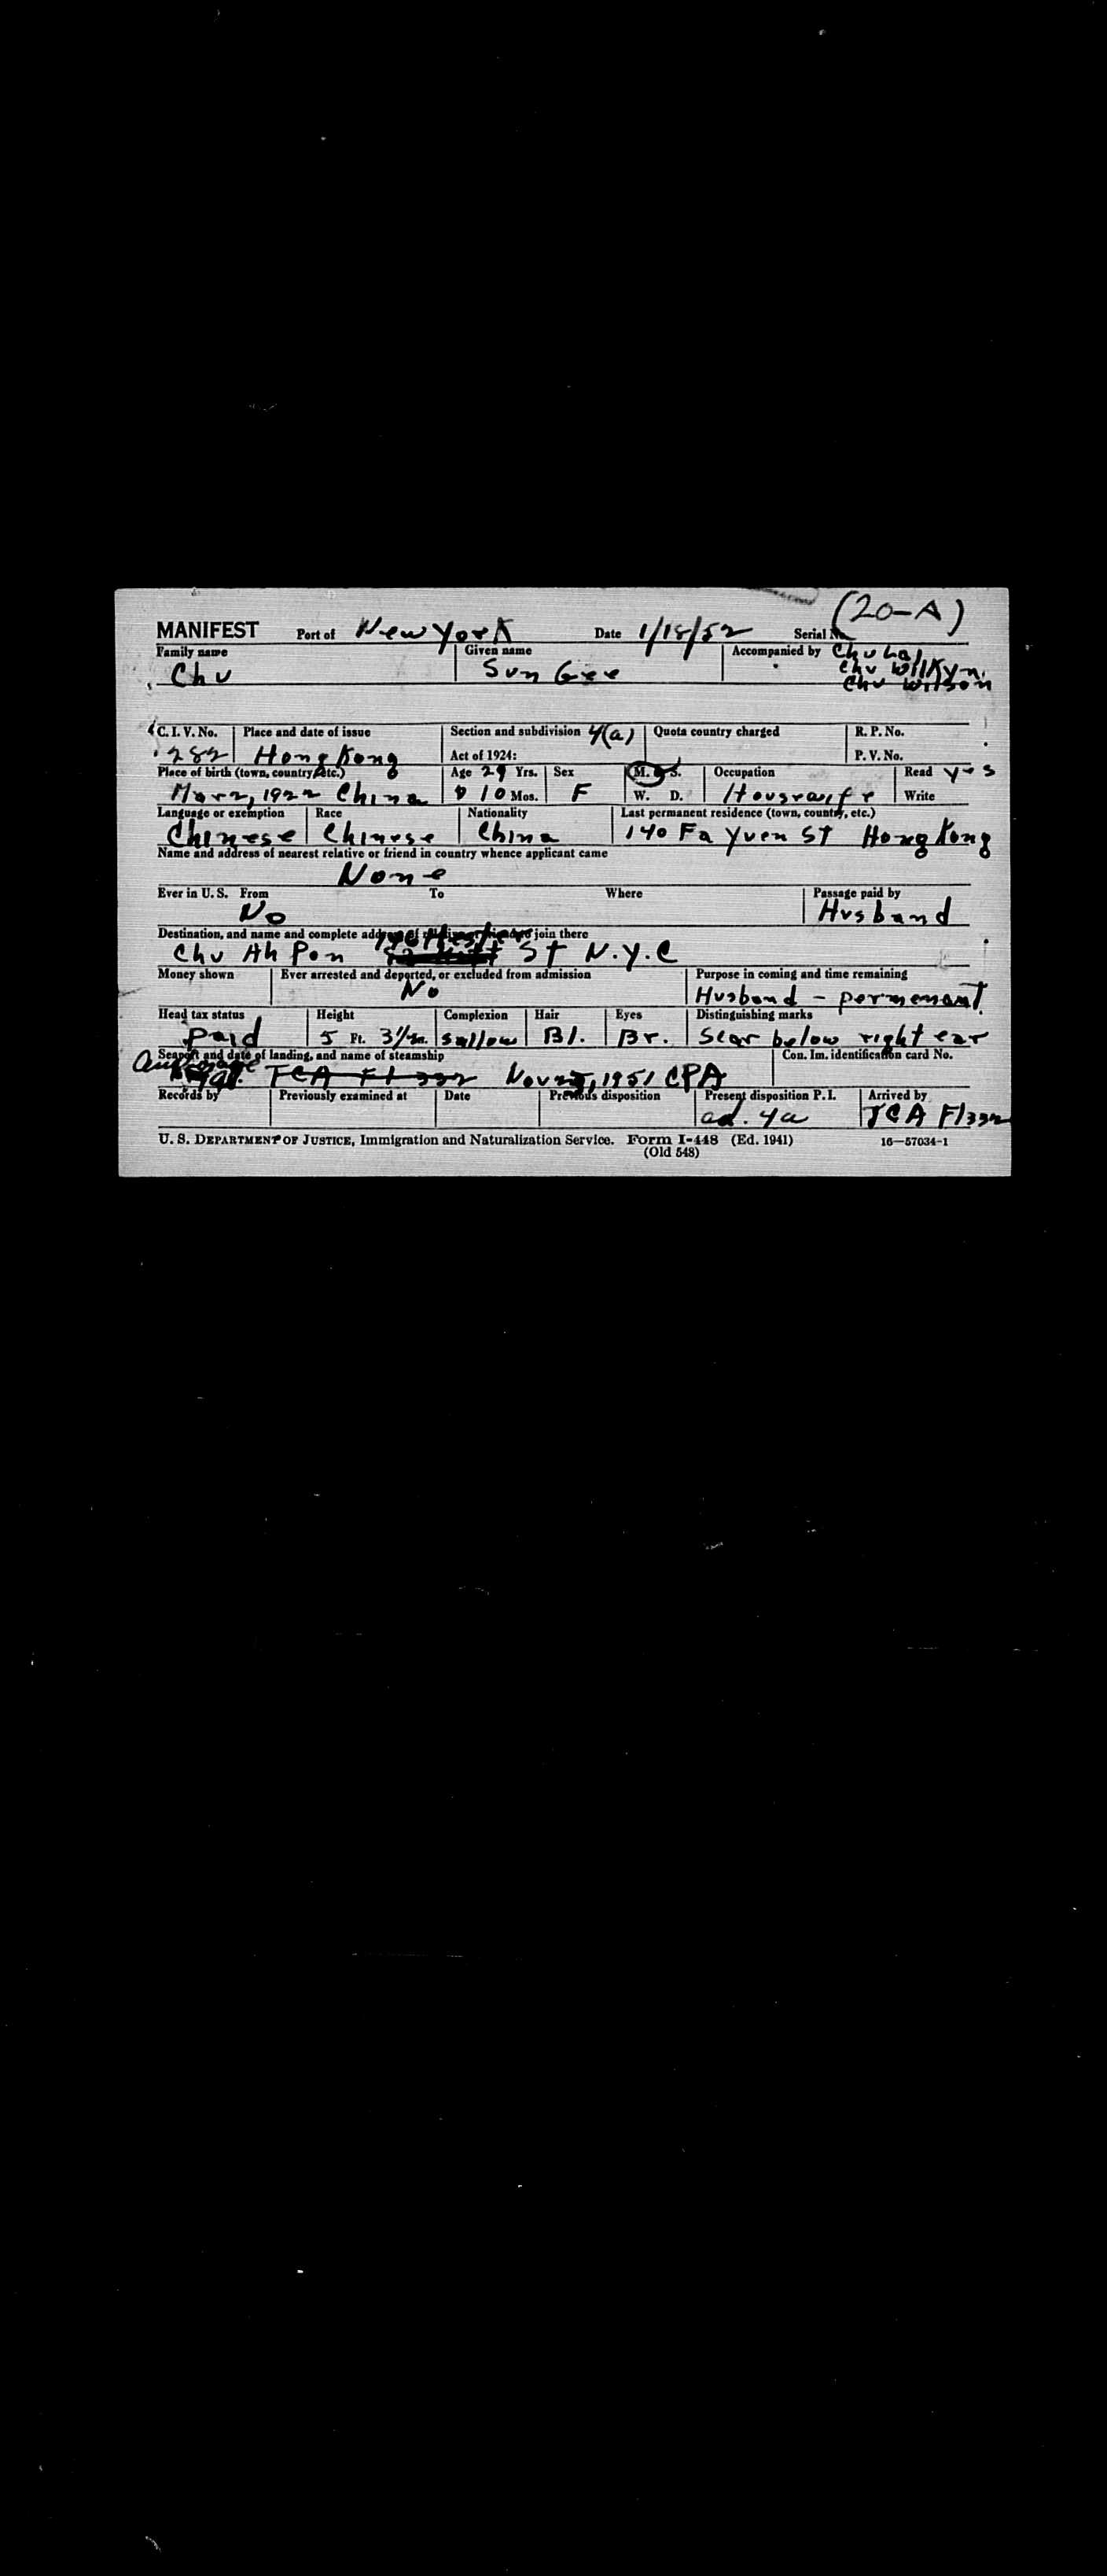 (20-A)
MANIFEST Port of New York Date 1/18/52 Serial No.
Family name Given name Accompanied by Chu Lai
Chu Sun Gee Chu Wilkyn
Chu Wilson
C. I. V. No. Place and date of issue Section and subdivision 4(a) Quota country charged R. P. No.
282 Hong Kong Act of 1924: P. V. No.
Place of birth (town, country, etc.) Age 29 Yrs. Sex M. S. Occupation Read yes
Mar 2, 1922 China 10 Mos. F W. D. Housewife Write
Language or exemption Race Nationality Last permanent residence (town, country, etc.)
Chinese Chinese China 140 Fa Yuen St Hong Kong
Name and address of nearest relative or friend in country whence applicant came
None
Ever in U. S. From To Where Passage paid by
No Husband
Destination, and name and complete address of join there
Chu Ah Pon St N.Y.C
Money shown Ever arrested and deported, or excluded from admission Purpose in coming and time remaining
No Husband - permenant
Head tax status Height Complexion Hair Eyes Distinguishing marks
Paid 5 Ft. 3½ In. Sallow Bl. Br. Scar below right ear
Seaport and date of landing, and name of steamship Con. Im. identification card No.
Anchorage TCA Fl 332 Nov 1951 CPA
Records by Previously examined at Date Previous disposition Present disposition P. I. Arrived by
ad. 4a TCA Fl 332
U. S. DEPARTMENT OF JUSTICE, Immigration and Naturalization Service. Form I-448 (Ed. 1941) 16—57034-1
(Old 548)